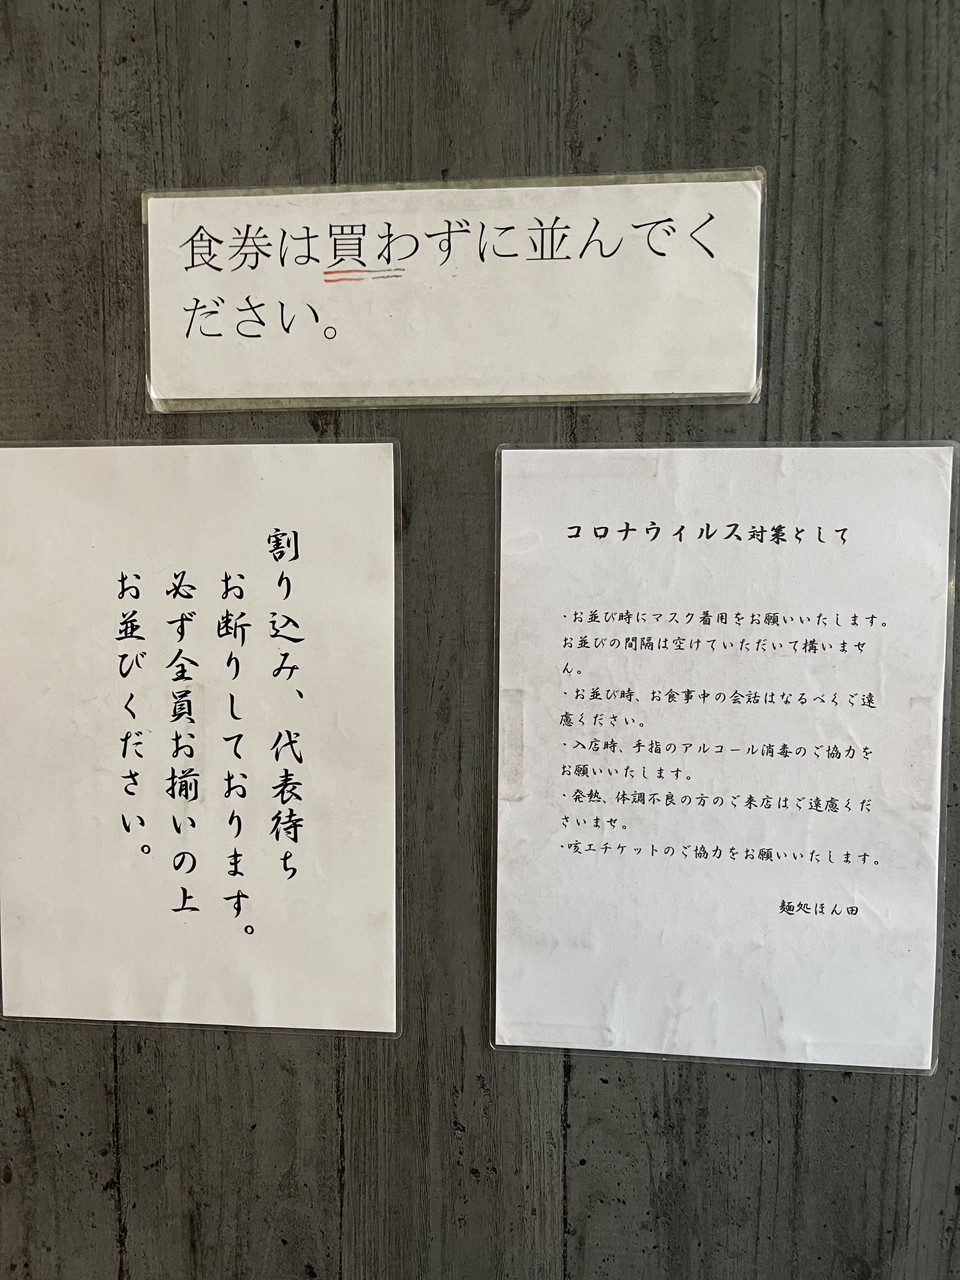 食券は買わずに並んでく
ださい。
割り込み、代表待ち
お断りしております。
必ず全員お揃いの上
お並びください。
コロナウィルス対策として
・お並び時にマスク着用をお願いいたします。
お並びの間隔は空けていただいて構いませ
ん。
・お並び時、お食事中の会話はなるべくご遠
慮ください。
・入店時、手指のアルコール消毒のご協力を
お願いいたします。
・発熱、体調不良の方のご来店はご遠慮くだ
さいませ。
・咳エチケットのご協力をお願いいたします。
麺処ほん田